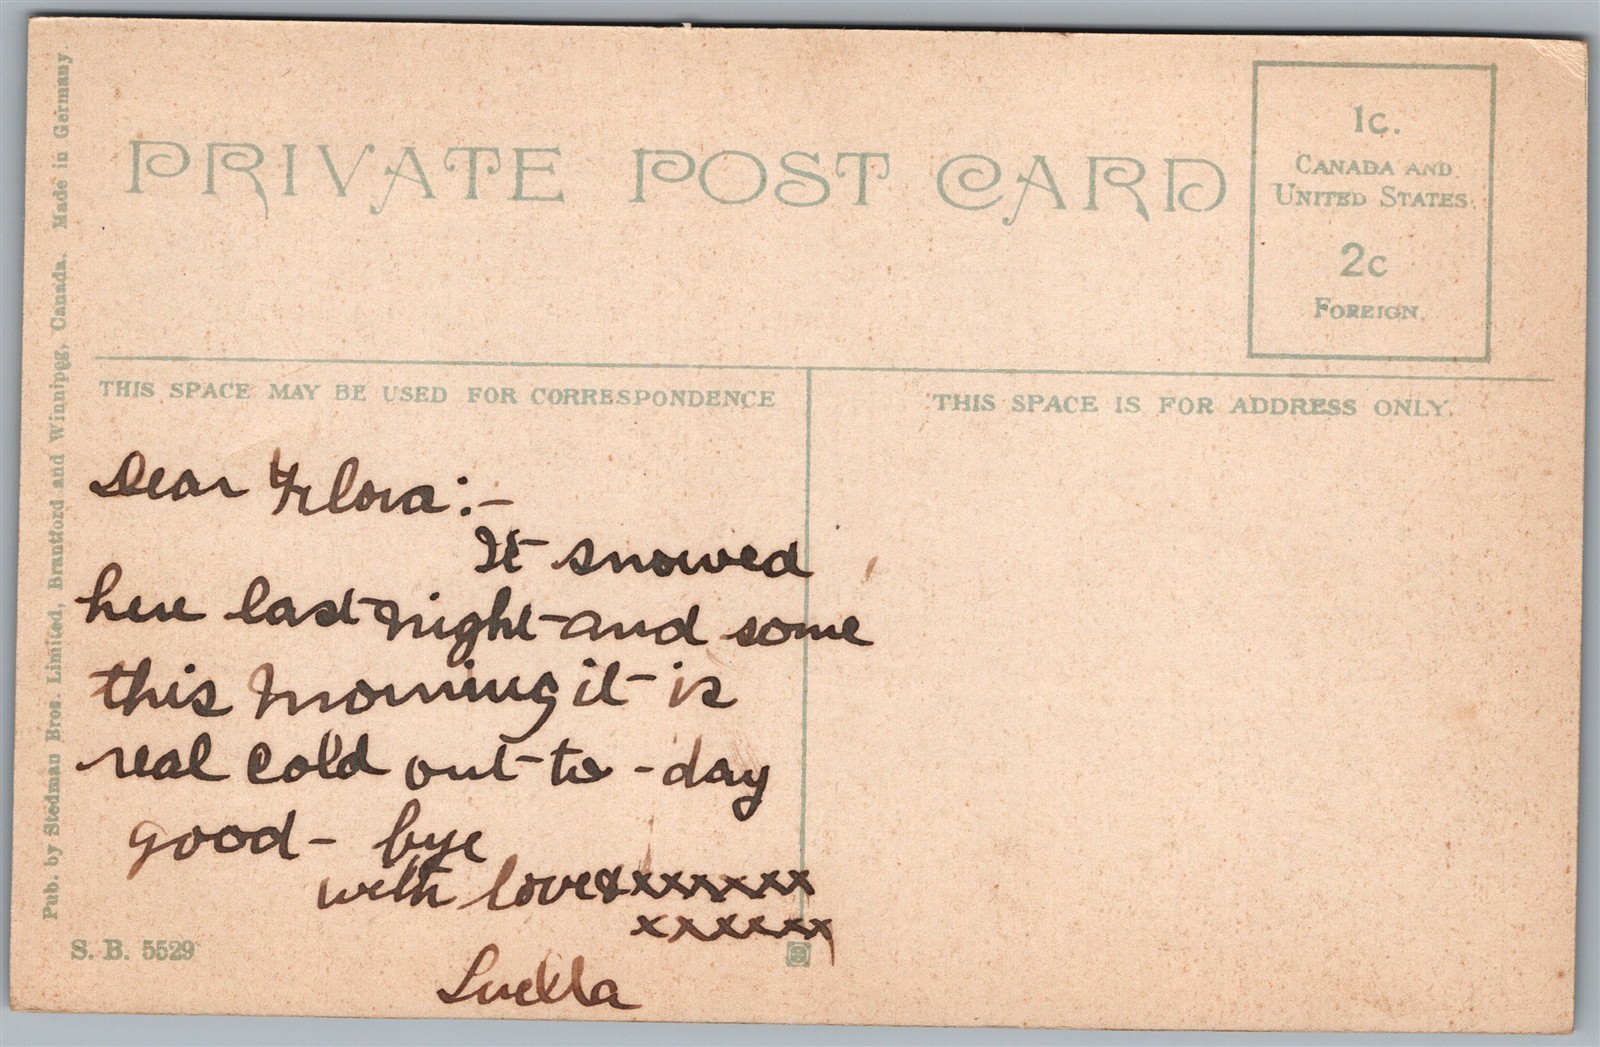 PRIVATE POST CARD
1c.
CANADA AND
UNITED STATES.
2c
FOREIGN.
THIS SPACE MAY BE USED FOR CORRESPONDENCE
THIS SPACE IS FOR ADDRESS ONLY.
Dear Flora:-
It snowed
here last night and some
this morning it is
real cold out to-day
good-bye
with love & xxxxxxx
xxxxxx
Luella
S. B. 5529
Pub. by Stedman Bros. Limited, Brantford and Winnipeg, Canada. Made in Germany.